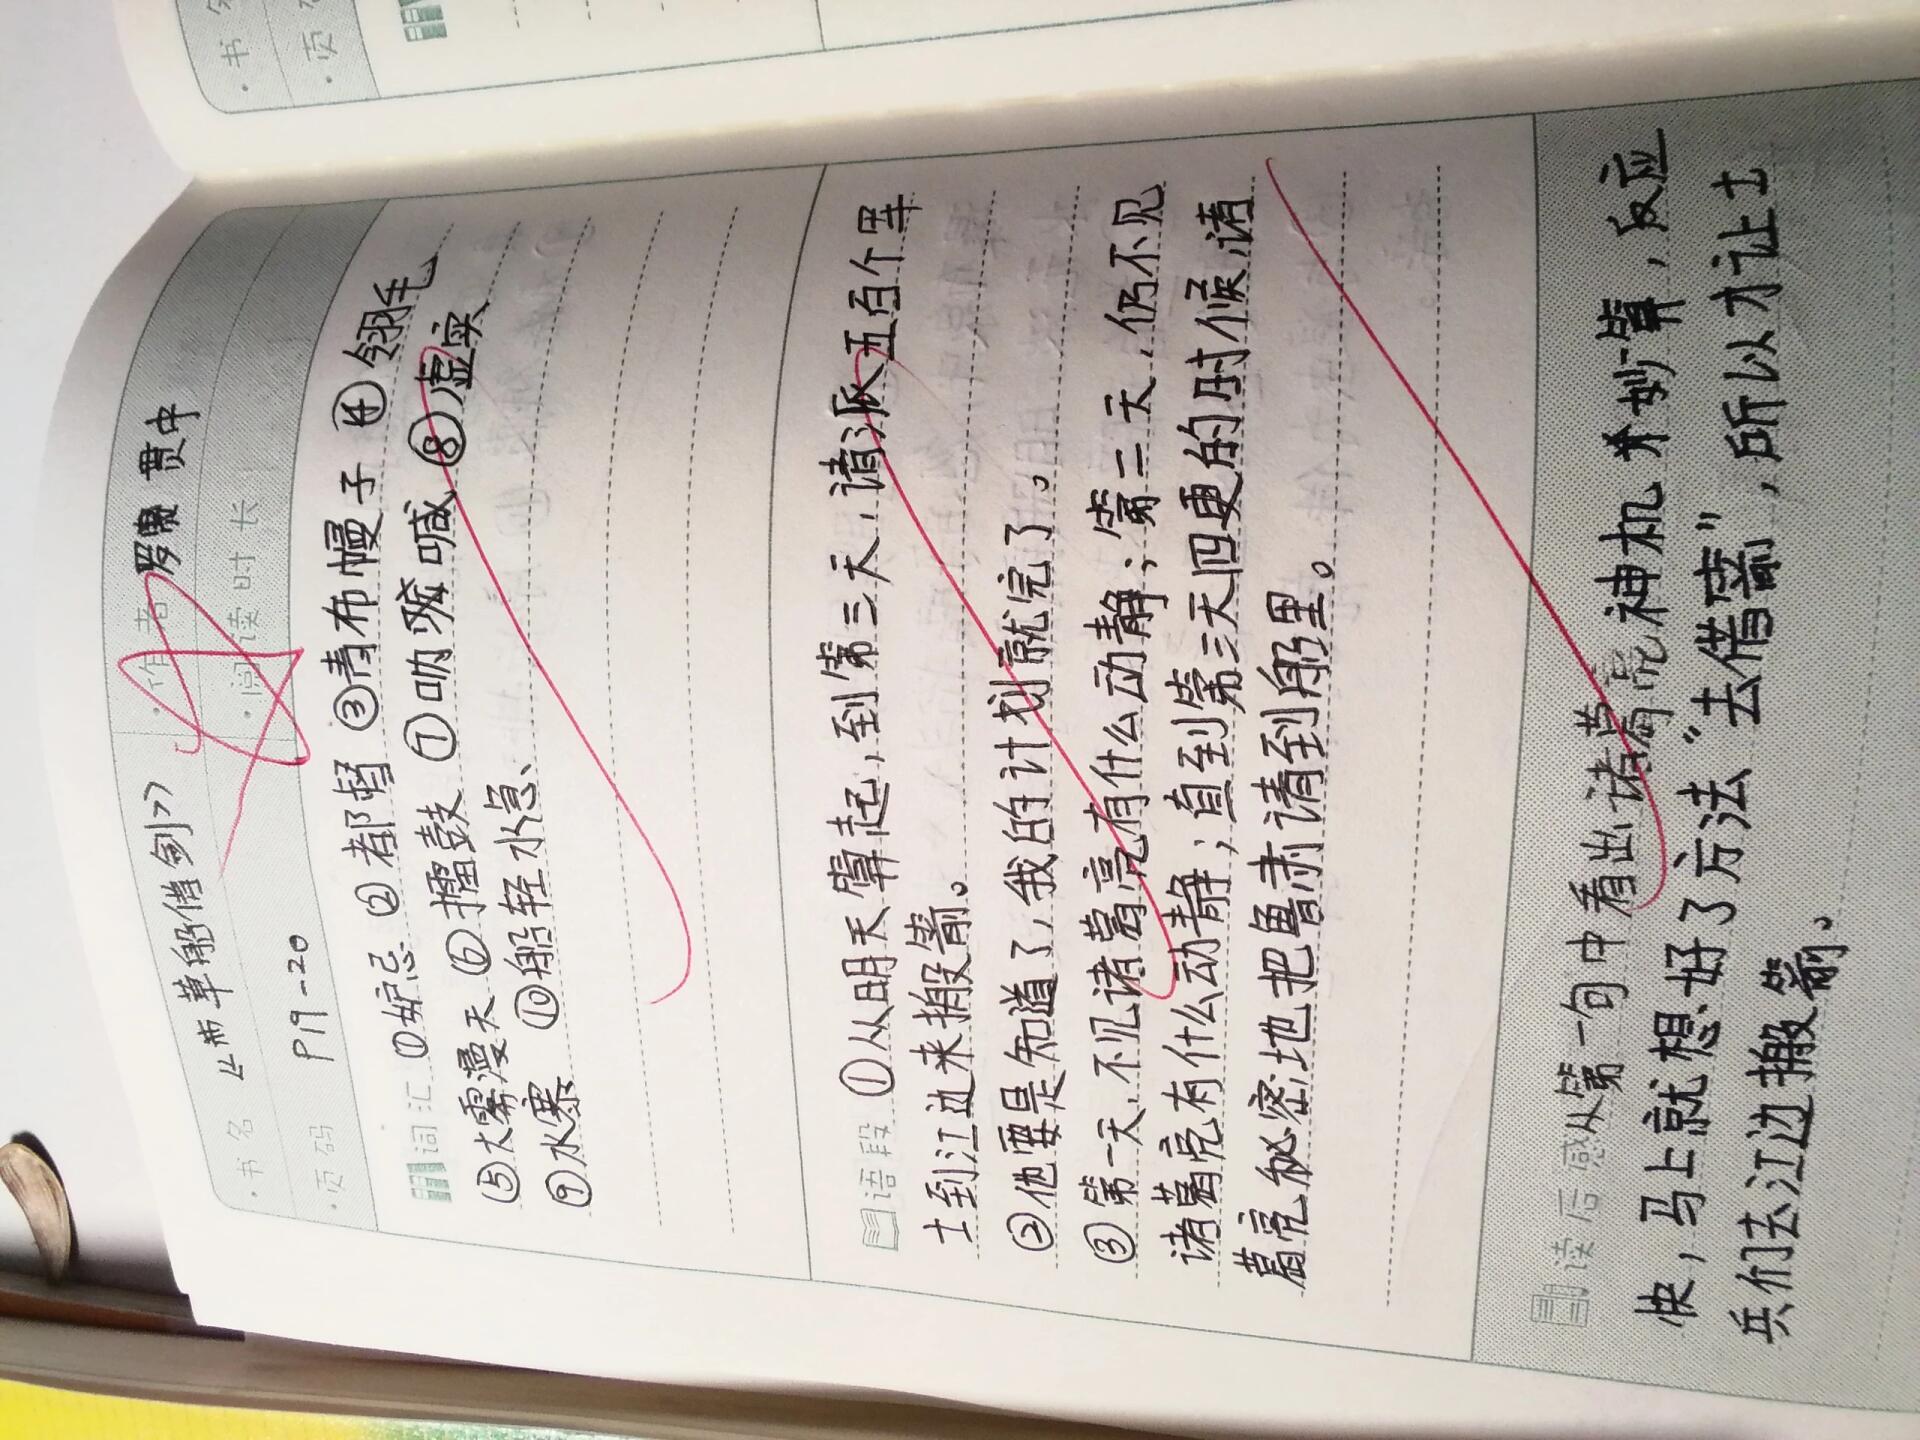 ·书名 《草船借剑》 ·作者 罗贯中
·页码 P19-20 ·阅读时长
词汇 ①妒忌 ②都督 ③青布幔子 ④翎毛
⑤大雾漫天 ⑥擂鼓 ⑦呐喊 ⑧虚实
⑨水寨 ⑩船轻水急、
语段 ①从明天算起,到第三天,请派五百个军
士到江边来搬箭。
②他要是知道了,我的计划就完了。
③第一天,不见诸葛亮有什么动静;第二天,仍不见
诸葛亮有什么动静;直到第三天四更的时候,诸
葛亮秘密地把鲁肃请到船里。
读后感 从第一句中看出诸葛亮神机妙算,反应
快,马上就想好了方法“去借箭”,所以才让士
兵们去江边搬箭。
·书
·页